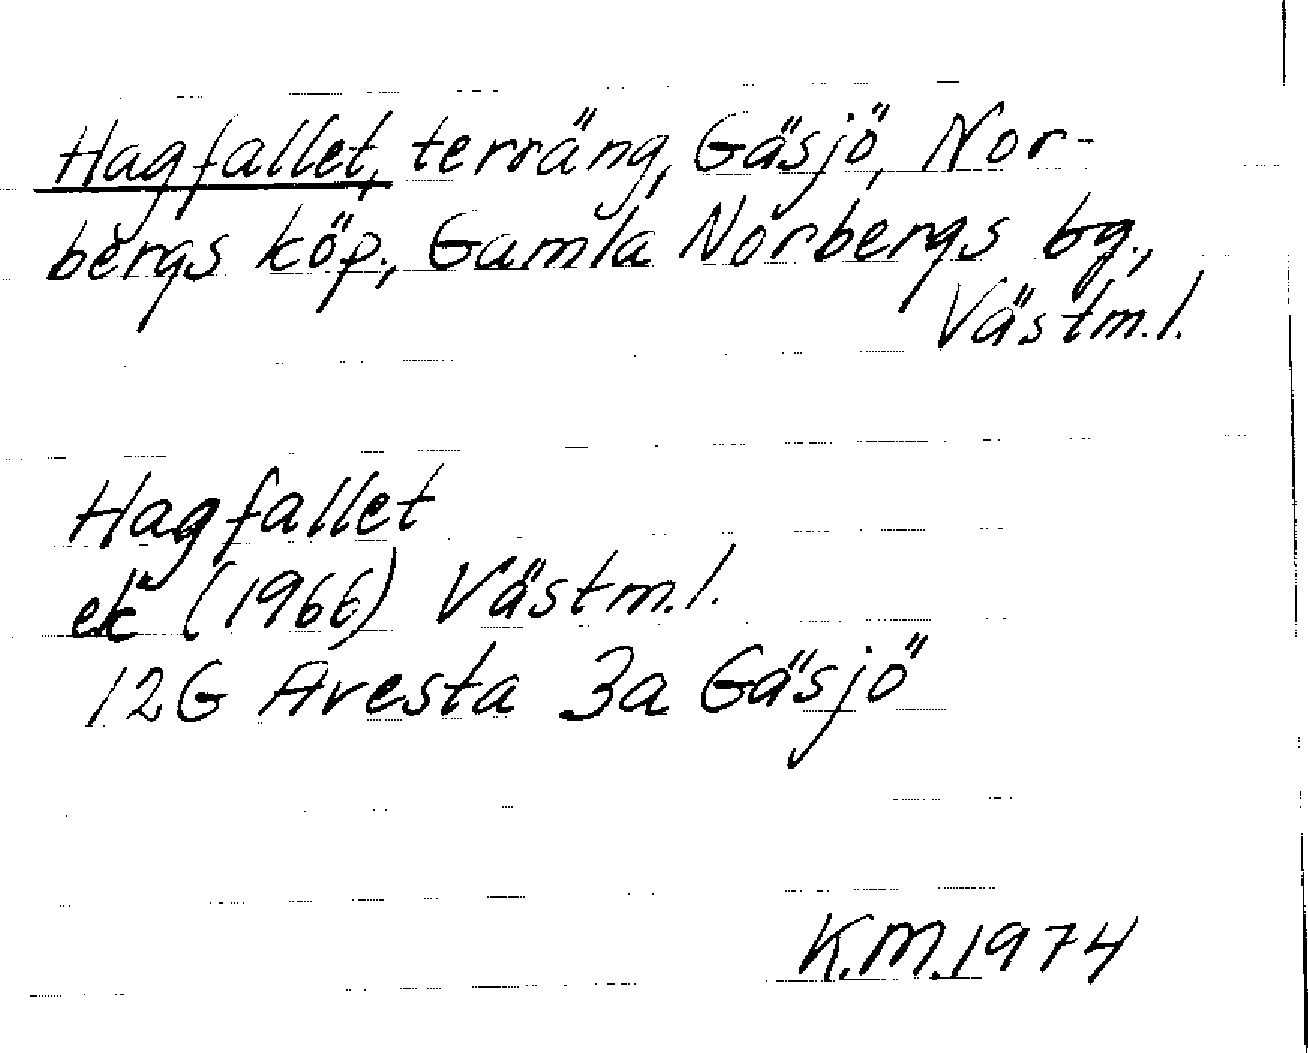 Hagfallet, terräng, Gäsjö, Nor-
bergs köp., Gamla Norbergs bg.,
Västm.l.
Hagfallet
ek (1966) Västm.l.
12G Avesta 3a Gäsjö
K.M.1974